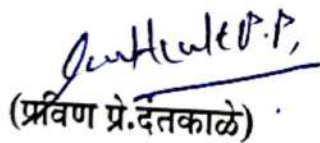 P.P.
(प्रविण प्रे.दंतकाळे)